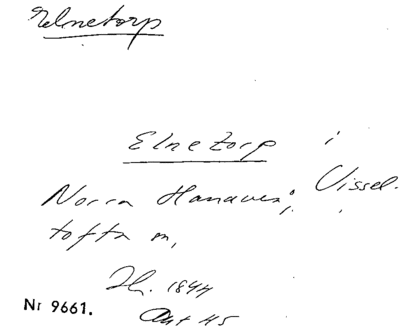 Elnetorp
Elnetorp i
Norra Hanaväs, Vissel-
tofta m,
Jh. 1844
Akt 45
Nr 9661.